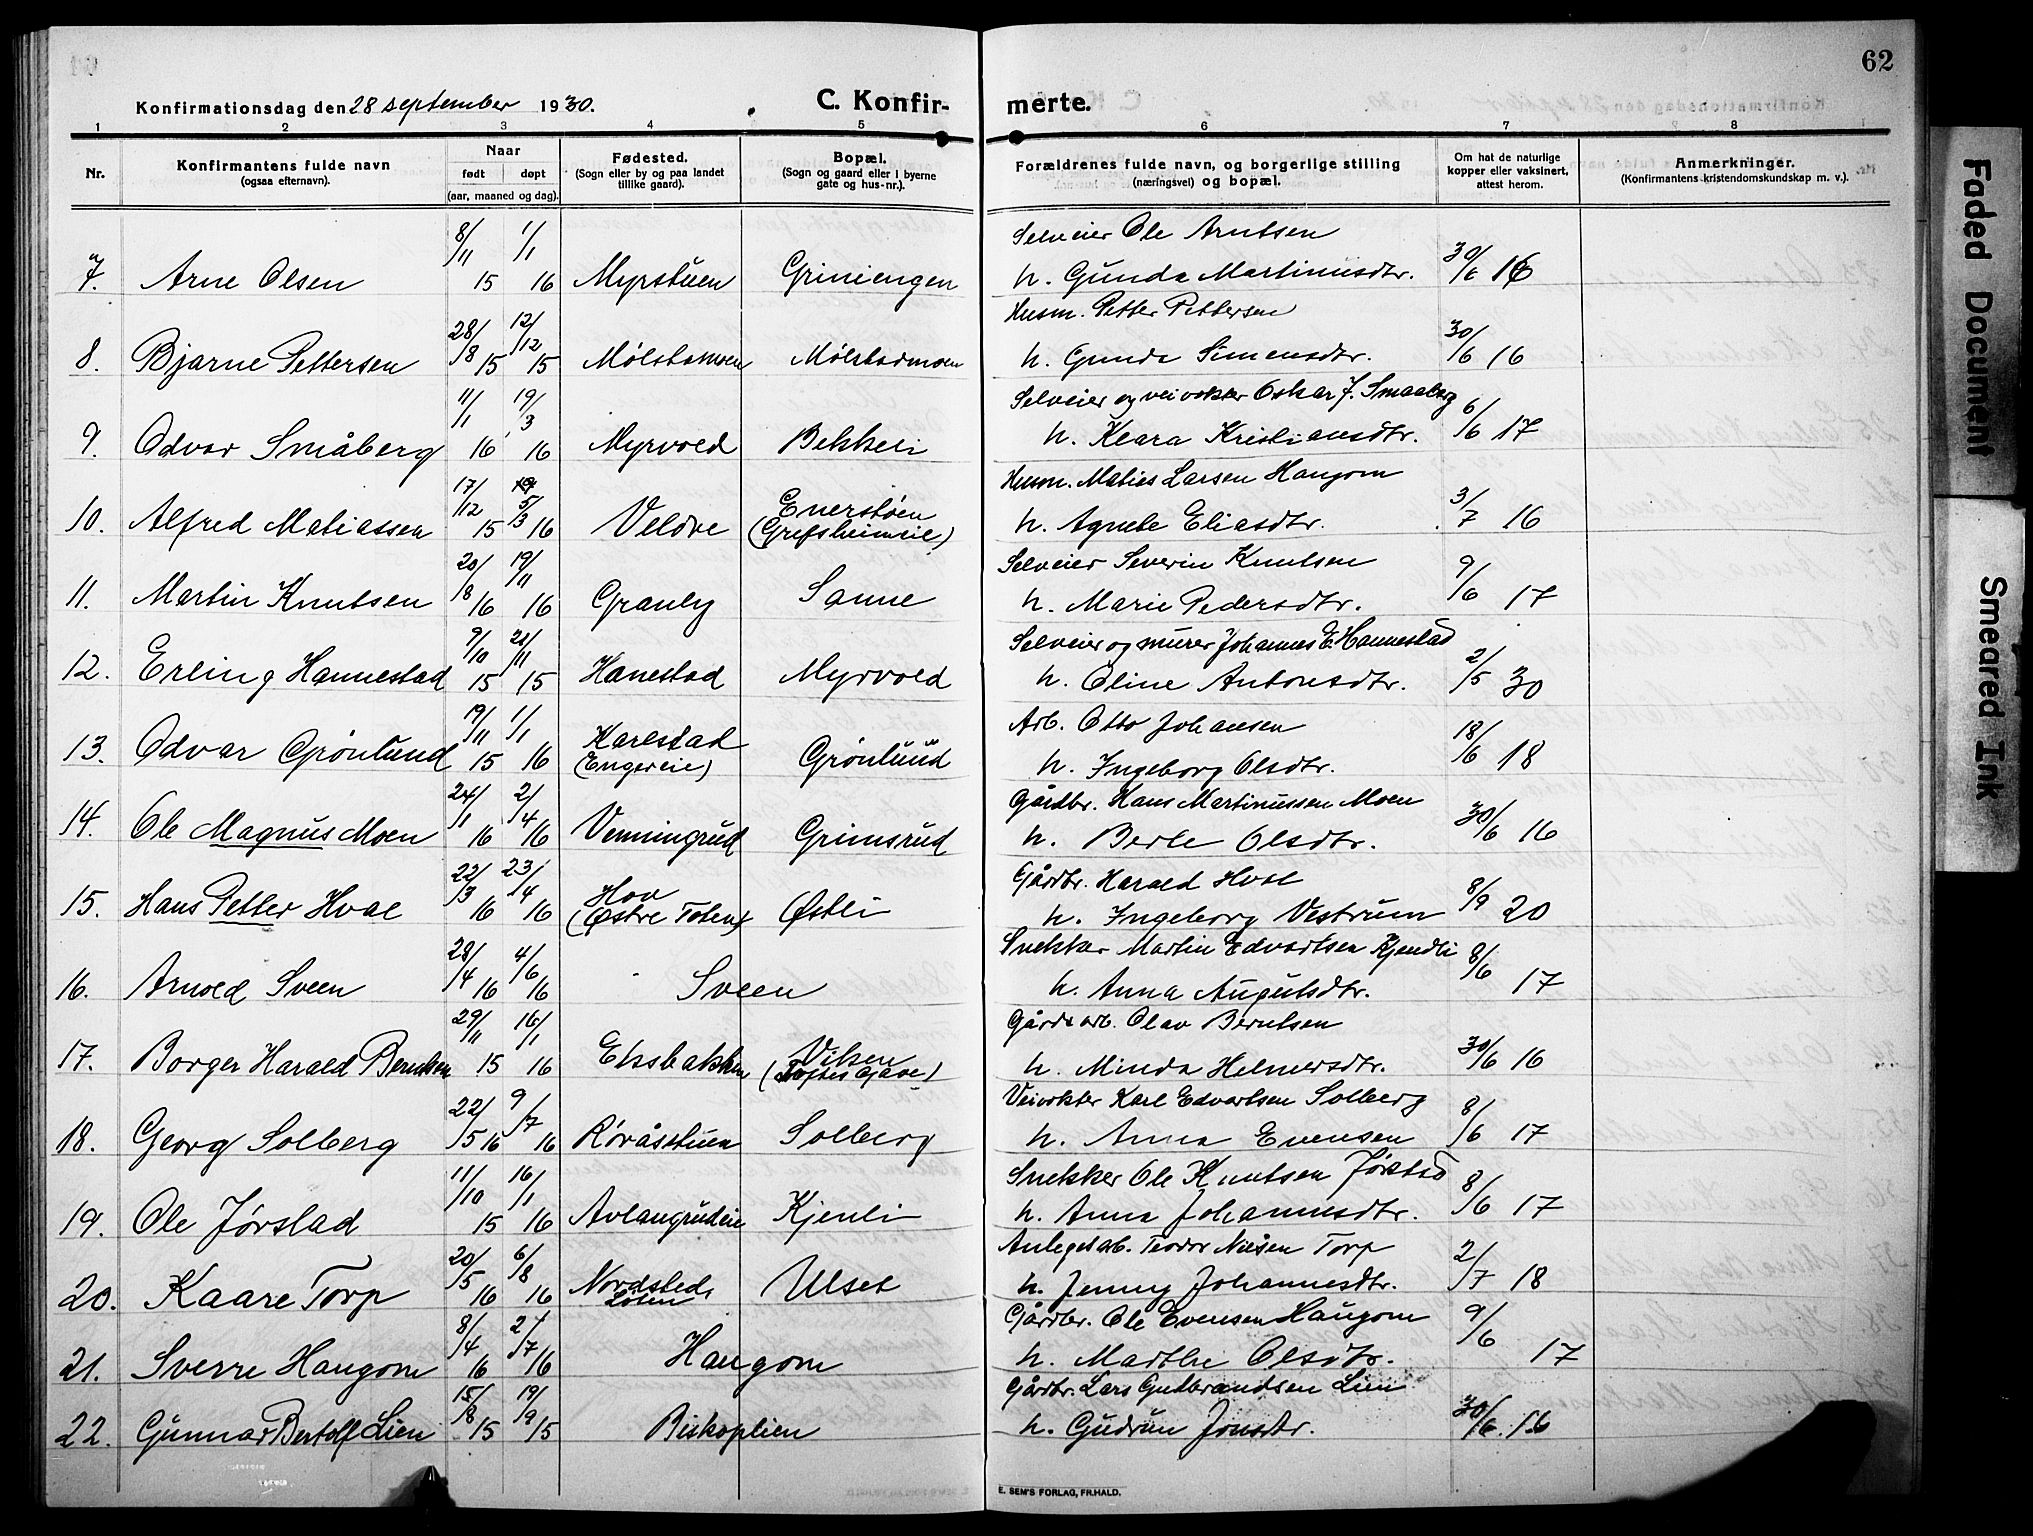 62
Konfirmationsdag den 28 september 1930.
C. Konfirmerte.
1 2 3 4 5 6 7 8
Nr.
Konfirmantens fulde navn
(ogsaa efternavn).
Naar
født døpt
(aar, maaned og dag).
Fødested.
(Sogn eller by og paa landet
tillike gaard).
Bopæl.
(Sogn og gaard eller i byerne
gate og hus-nr.).
Forældrenes fulde navn, og borgerlige stilling
(næringsvei) og bopæl.
Om hat de naturlige
kopper eller vaksinert,
attest herom.
Anmerkninger.
(Konfirmantens kristendomskundskap m. v.).
8/11 1/1 Selveier Ole Arntsen
7. Arne Olsen 15 16 Myrstuen Griniengen h. Gunda Martinusdtr. 30/6 16
28/8 12/12 Husm. Petter Pettersen
8. Bjarne Pettersen 15 15 Mølstamoen Mølstadmoen h. Gunda Simensdtr. 30/6 16
11/1 19/3 Selveier og veivokter Oskar J. Smaaberg
9. Odvar Småberg 16 16 Myrvold Bekkeli h. Klara Kristiansdtr. 6/6 17
17/12 5/3 Husm. Maties Larsen Haugom
10. Alfred Matiassen 15 16 Veldre Enerstøen
(Grefsheimeie) h. Agnete Eliasdtr. 3/7 16
20/8 19/11 Selveier Severin Knutsen
11. Martin Knutsen 16 16 Granly Sanne h. Marie Pedersdtr. 9/6 17
9/10 21/11 Selveier og murer Johannes E. Hannestad
12. Erling Hannestad 15 15 Hanestad Myrvold h. Oline Antonsdtr. 2/5 30
19/11 1/1 Arb. Otto Johansen
13. Odvar Grönlund 15 16 Karlstad
(Engereie) Grönlund h. Ingeborg Olsdtr. 18/6 18
24/1 2/4 Gårdbr. Hans Martinussen Moen
14. Ole Magnus Moen 16 16 Venningrud Grimsrud h. Berte Olsdtr. 30/6 16
22/3 23/4 Gårdbr. Harald Hval
15. Hans Petter Hval 16 16 Hov
(Østre Toten) Østli h. Ingeborg Vestrum 8/9 20
28/4 4/6 Snekker Martin Edvartsen Kjendli
16. Arnold Sveen 16 16 Sveen h. Anna Augutsdtr. 8/6 17
29/11 16/1 Gårds arb. Olav Berntsen
17. Borger Harald Berntsen 15 16 Eksbakken Viken h. Minda Helmersdtr. 30/6 16
22/5 9/7 Veivokter Karl Edvartsen Solberg
18. Georg Solberg 16 16 Røråsstuen Solberg h. Anna Evensen 8/6 17
11/10 16/1 Snekker Ole Knutsen Jørstad
19. Ole Jørstad 15 16 Avlangrudeie Kjenli h. Anna Johannesdtr. 8/6 17
20/5 6/8 Anlegsarb. Teodor Nilsen Torp
20. Kaare Torp 16 16 Nordsted,
Løten Ulset h. Jenny Johannesdtr. 2/7 18
8/4 2/7 Gårdbr. Ole Evensen Haugom
21. Sverre Haugom 16 16 Haugom h. Marthe Olsdtr. 9/6 17
15/8 19/9 Gårdbr. Lars Gudbrandsen Lien
22. Gunnar Bertolf Lien 15 15 Biskoplien h. Gudrun Jonsdtr. 30/6 16
E. SEM'S FORLAG, FR.HALD.
Faded Document
Smeared Ink